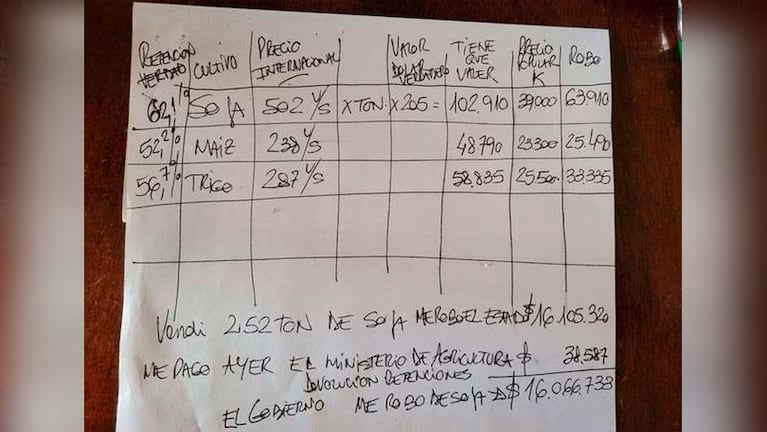 RETENCION VERDAD | CULTIVO | PRECIO INTERNACIONAL | | VALOR DOLAR VERDADERO | TIENE QUE VALER | PRECIO K | ROBO
62,1% | SOJA | 502 U/S | X TON. | X 205 = | 102.910 | 39000 | 63.910
52,2% | MAIZ | 238 U/S | | | 48.790 | 23300 | 25.490
56,7% | TRIGO | 287 U/S | | | 58.835 | 25500 | 33.335
Vendi 252 TON DE SOJA ME ROBO EL ESTADO $ 16.105.320
ME PAGO AYER EL MINISTERIO DE AGRICULTURA $ 38.587
DEVOLUCION RETENCIONES
EL GOBIERNO ME ROBO DE SOJA $ 16.066.733